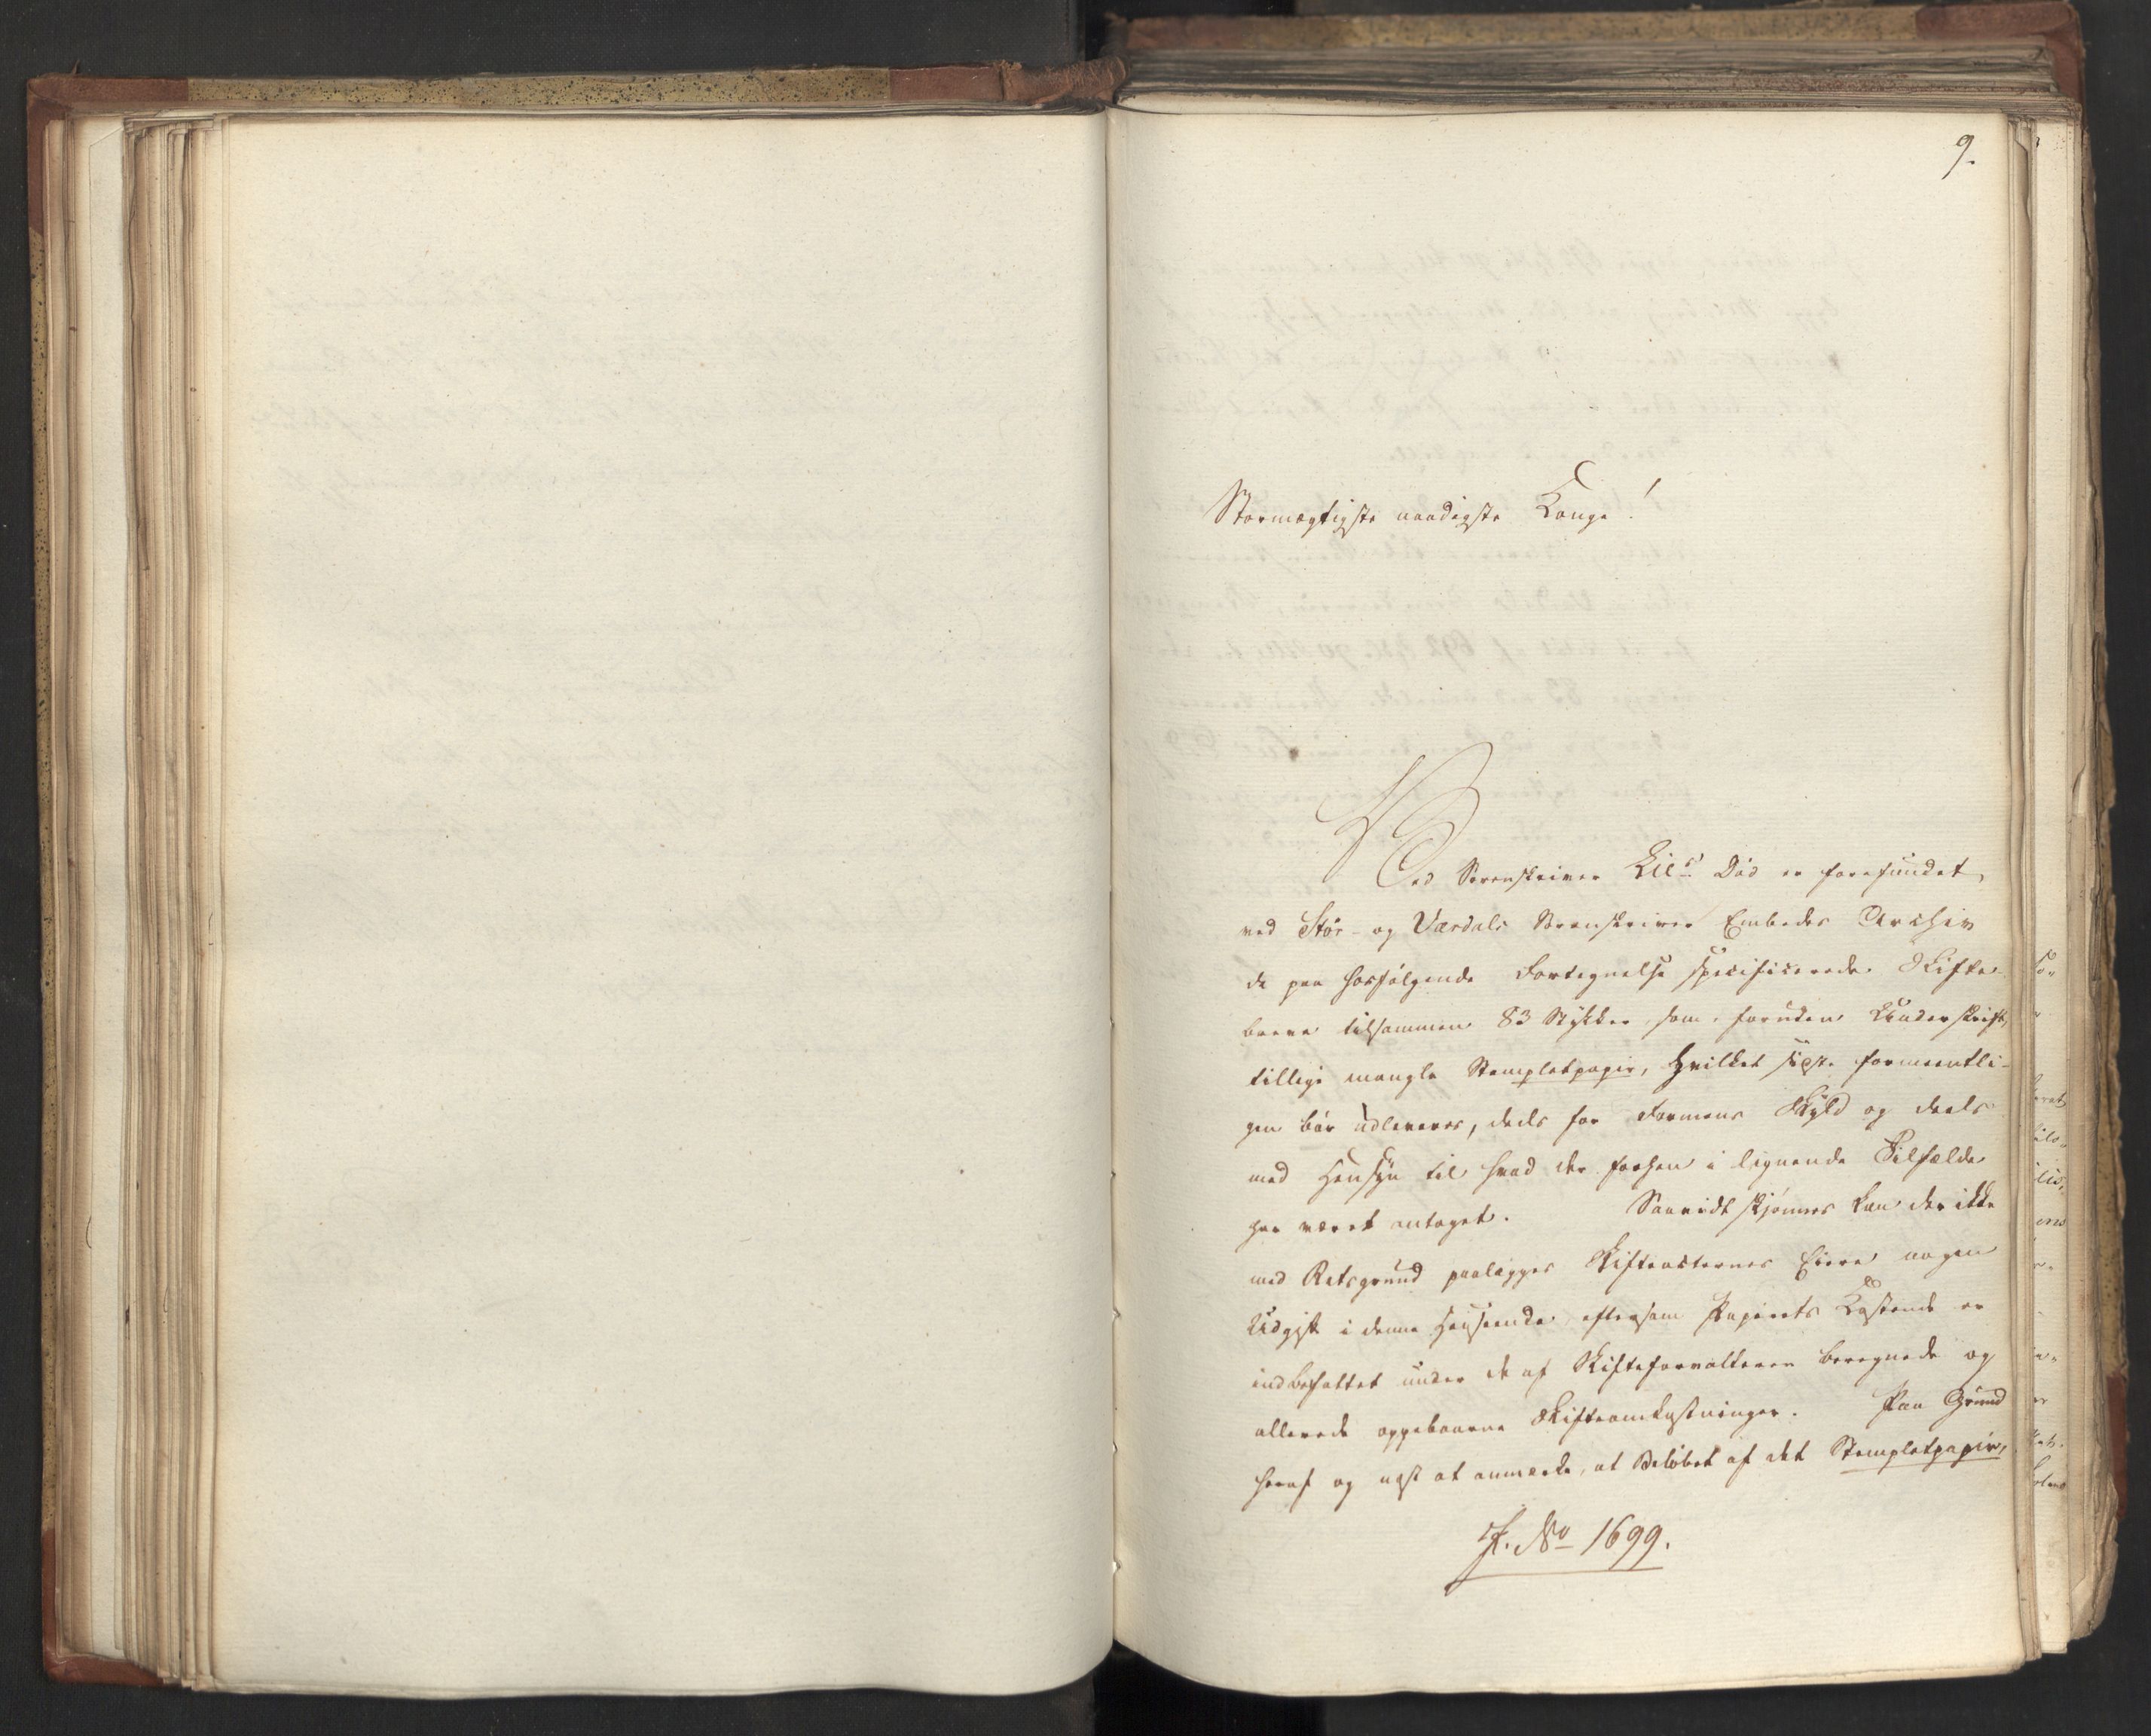 9.
Stormægtigste naadigste Konge!
Ved Sorenskriver Lies Død er forefundet,
ved Stør- og Værdals Sorenskriver Embedes Archiv
de paa hosfølgende Fortegnelse specificerede Skifte-
breve tilsammen 83 Stykker, som, foruden Underskrift,
tillige mangle Stempletpapir, hvilket sidste formeentli-
gen bør udleveres, deels for Formens Skyld og deels
med Hensyn til hvad der forhen i lignende Tilfælde
har været antaget. Saavidt skjønnes kan der ikke
med Retsgrund paalægges Skifteacternes Eiere nogen
Udgift i denne Henseende eftersom Papirets Kostende er
indbefattet under de af Skifteforvalteren beregnede og
allerede oppebaarne Skifteomkostninger. Paa Grund
heraf og næst at anmærke, at Beløbet af det Stempletpapir,
J. No 1699.